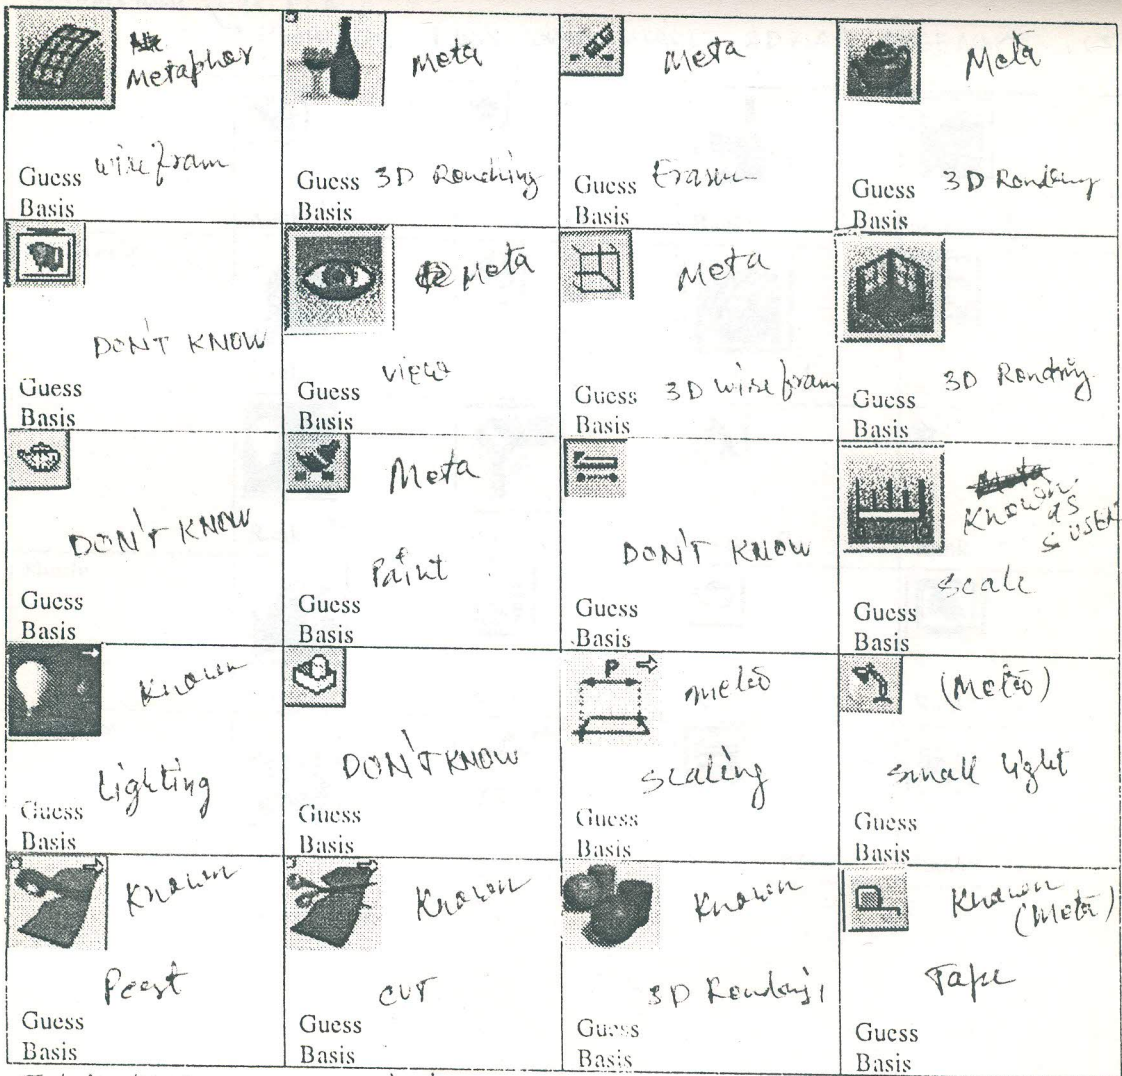 Metaphor
Guess wire fram
Basis
Meta
Guess 3D Rending
Basis
Meta
Guess Eraser
Basis
Meta
Guess 3D Rending
Basis
DON'T KNOW
Guess
Basis
Meta
view
Guess
Basis
Meta
Guess 3D wire fram
Basis
3D Rendring
Guess
Basis
DON'T KNOW
Guess
Basis
Meta
Paint
Guess
Basis
DON'T KNOW
Guess
Basis
Known
as
Scale
Guess
Basis
Known
Lighting
Guess
Basis
DON'T KNOW
Guess
Basis
P
Scaling
Guess
Basis
small light
Guess
Basis
Known
Peest
Guess
Basis
Known
CUT
Guess
Basis
Known
3D
Guess
Basis
Known
(Meta)
Tape
Guess
Basis